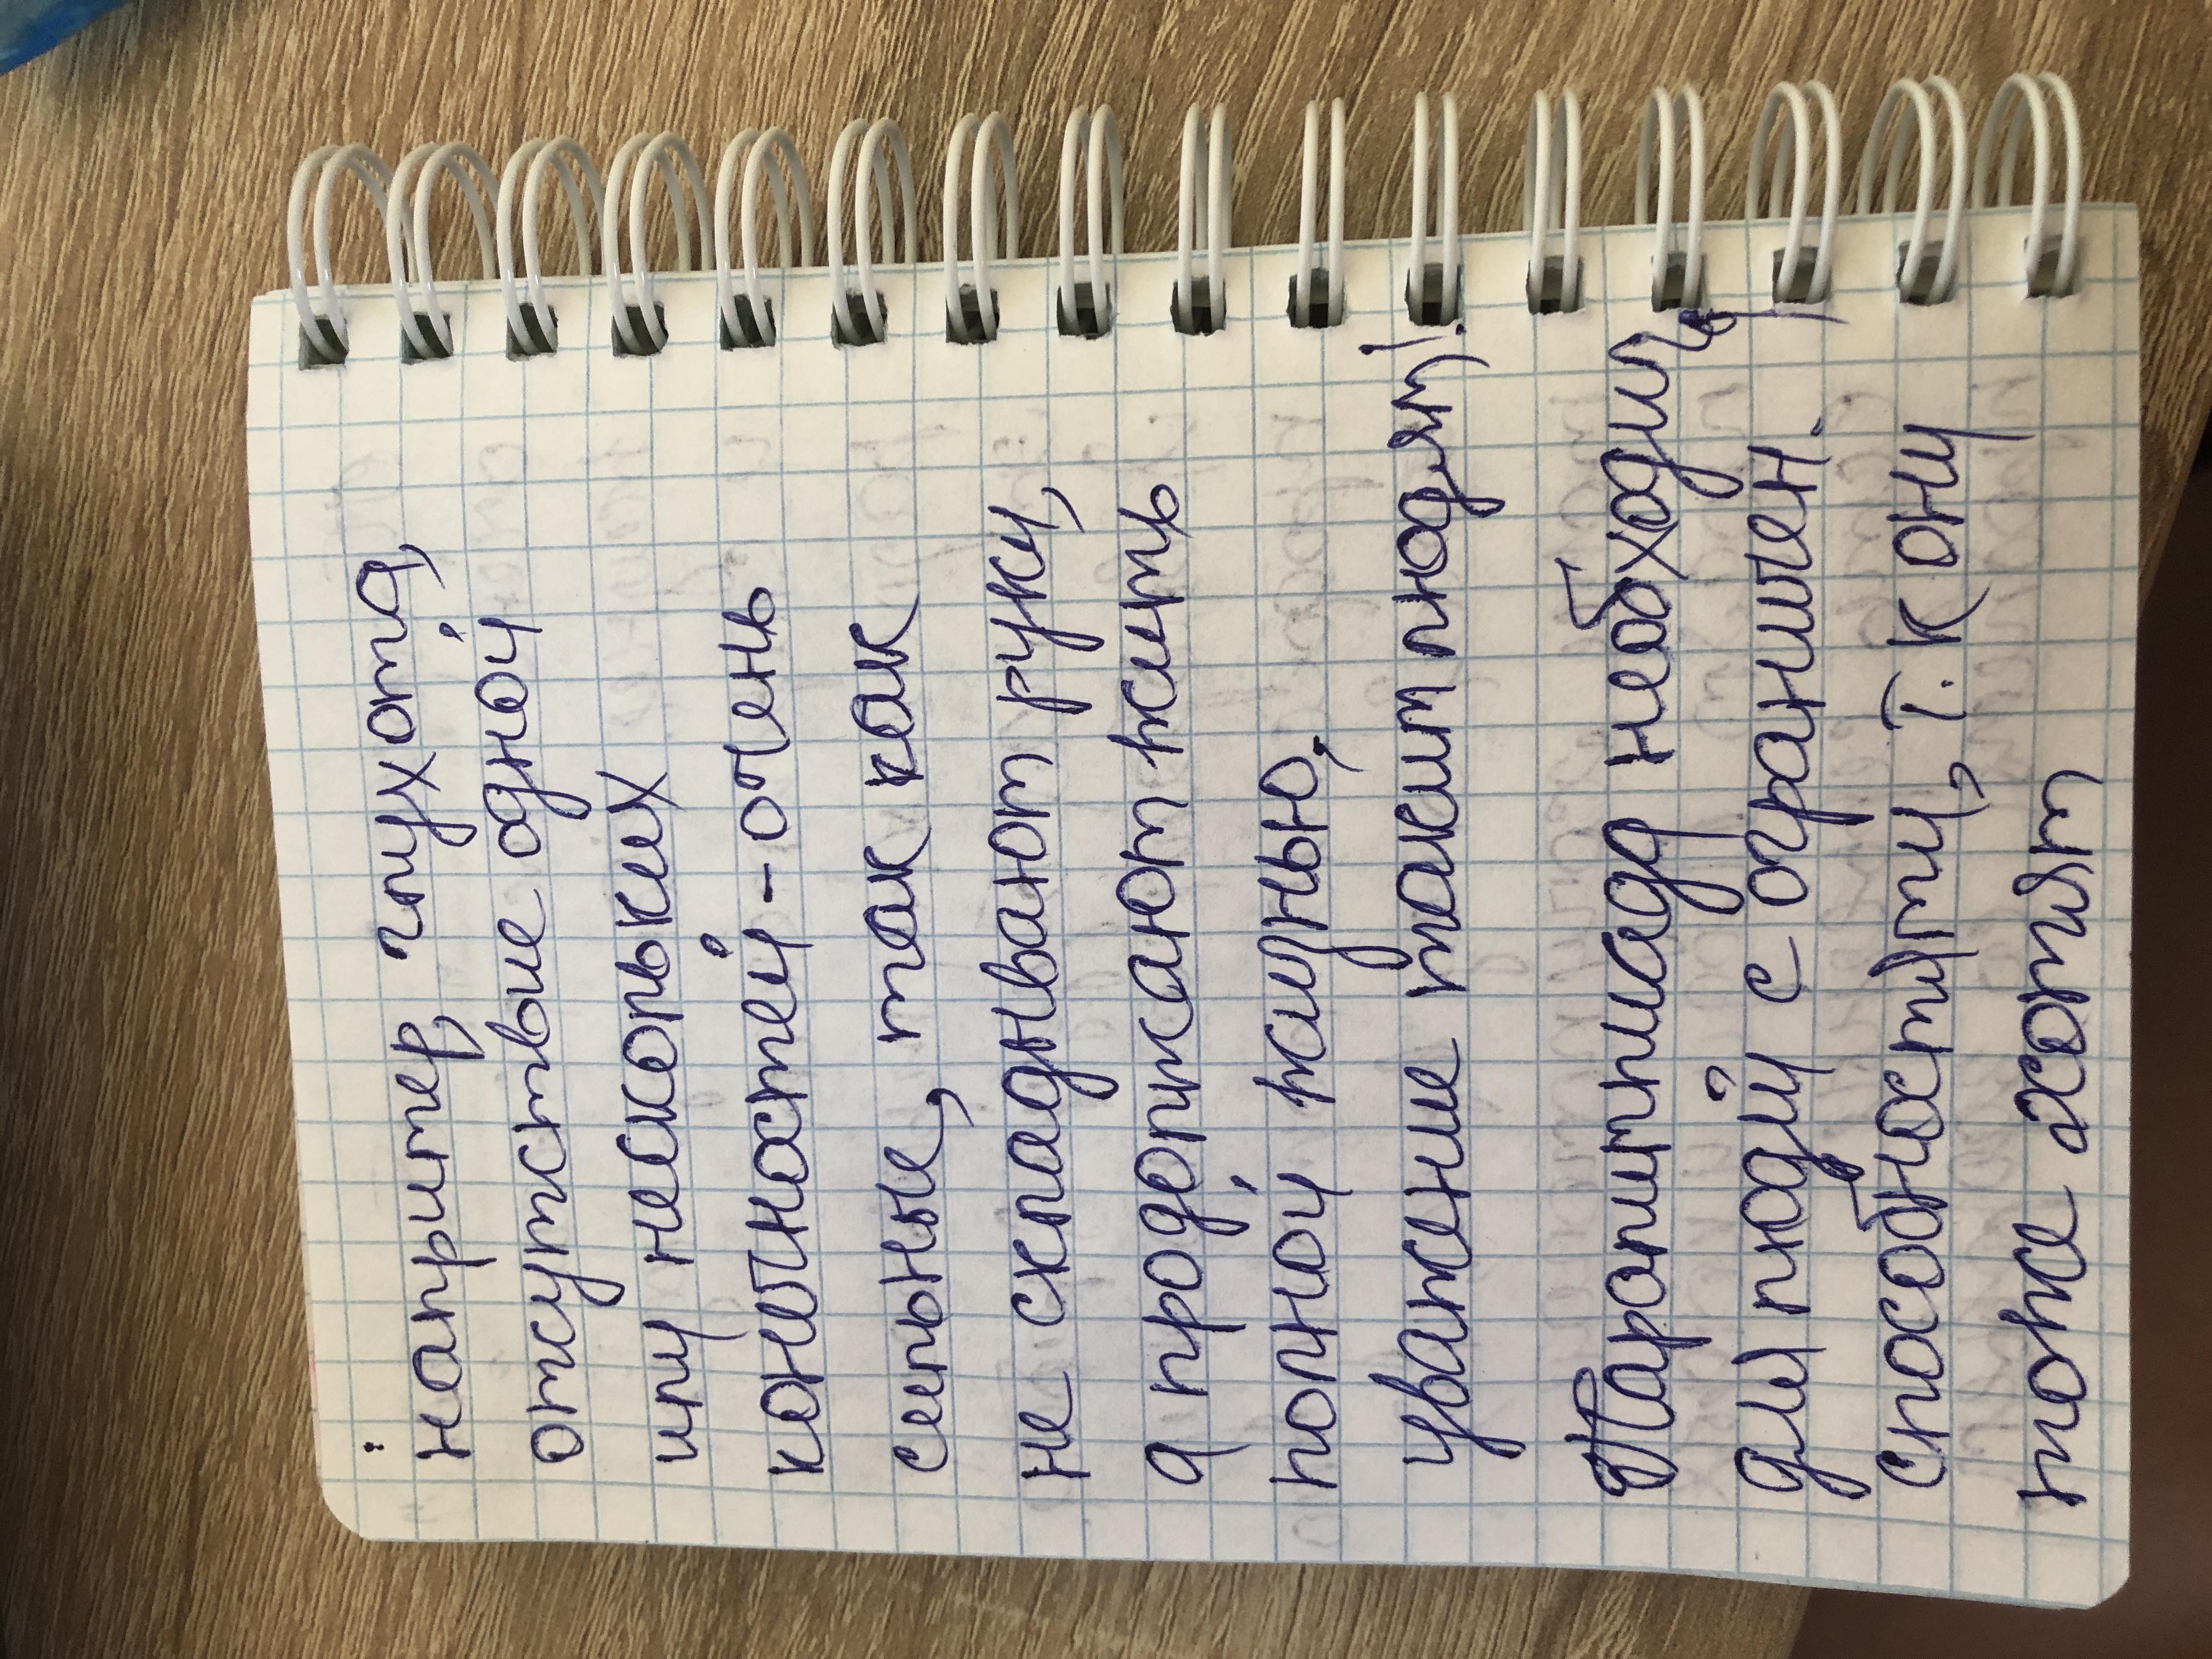 например, глухота,
отсутствие одной
или нескольких
конечностей - очень
сильные, так как
не складывают руки,
а продолжают жить
полной жизнью,
уважение таким людям!
Паролимпиада необходима
для людей с ограничен.
способностями, т.к они
тоже хотят